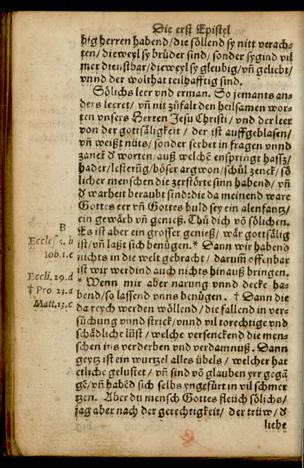 Die erst Epistel
big herren habend / die söllend sy nitt verach-
ten / dieweyl sy brüder sind / sonder sygind vil
mer dienstbar / dieweyl sy gleubig / vñ geliebt /
vnnd der wolthat teilhafftig sind.
Sölichs leer vnd erman. So jemants an-
ders leeret / vñ nit zůfalt den heilsamen wor-
ten vnsers Herren Jesu Christi / vnd der leer
von der gottsäligkeit / der ist auffgeblasen /
vñ weißt nüts / sonder serbet in fragen vnnd
zanck d worten / auß welchē enspringt haſſz /
hader / lesterūg / böser argwon / schůl zenck / sö
licher menschen die zerstörte sinn habend / vñ
d warheit beraubt sind: die da meinend ware
Gottes eer vñ Gottes huld sey ein alenfantz /
ein gewärb vñ genieß. Thů dich võ sölichen.
B
Es ist aber ein grosser genieß / wär gottsälig
Eccles. 5. b
ist / vñ laßt sich benügen. * Dann wir habend
Iob. 1. c
nichts in die welt gebracht / darum̃ offenbar
ist wir werdind auch nichts hinauß bringen.
Eccli. 29. d
* Wenn mir aber narung vnnd decke ha-
† Pro. 23. a
bend / so lassend vnns benügen. † Dann die
Matt. 13. c
da reych werden wöllend / die fallend in ver-
sůchung vnnd strick / vnnd vil torechtige vnd
schädliche lüst / welche versenckend die men-
schen ins verderben vnd verdamnuß. Dann
geytz ist ein wurtzel alles übels / welcher hat
etliche gelustet / vñ sind võ glauben yrr gegā
gē / vñ habēd sich selbs yngefürt in vil schmer
tzen. Aber du mensch Gottes fleüch sölichs /
jag aber nach der gerechtigkeit / der trüw / d
liebe